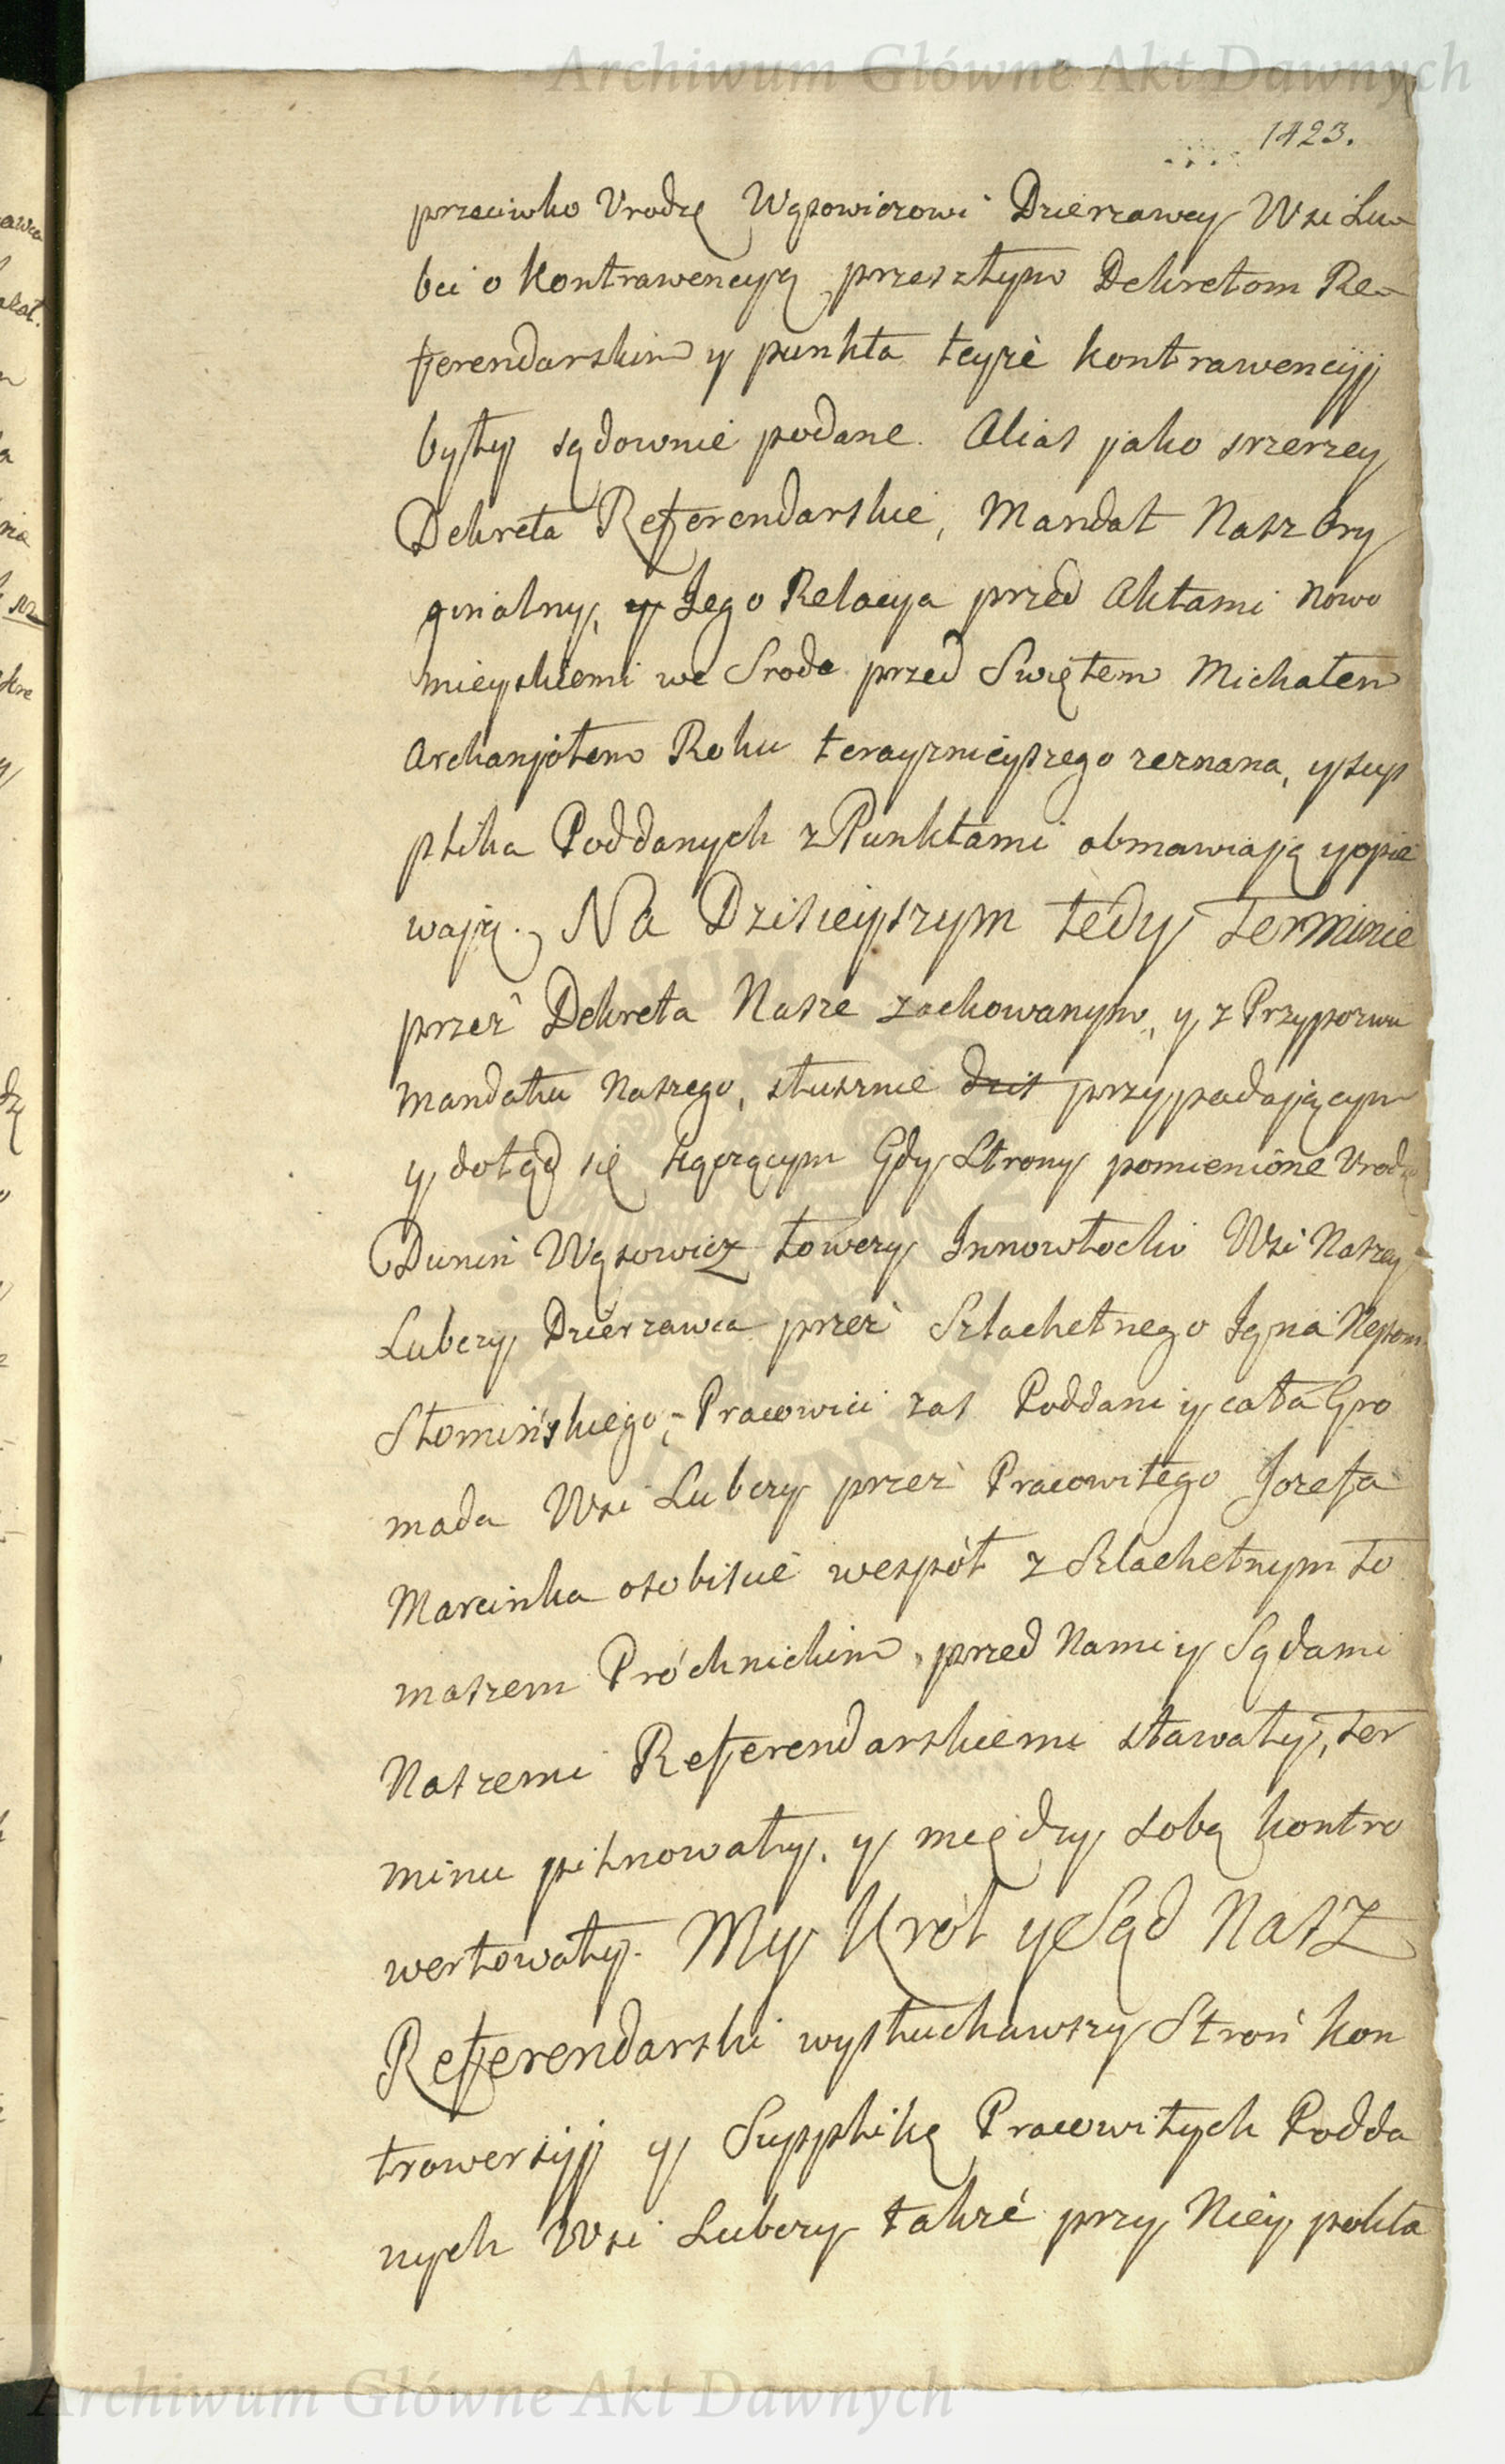 Archiwum Główne Akt Dawnych
1423.
przeciwko Urodzę Wąsowiczowi Dzierzawcy Wsi Lu-
bci o kontrawencyą przeszłym Dekretom Re-
ferendarskim y punkta teyże kontrawencyi
były sądownie podane. Alias jako szerzey
Dekreta Referendarskie, Mandat Nasz Ory
ginalny, y Jego Relacya przed Aktami Nowo
mieyskiemi we Srode przed Swiętem Michałem
Archanjołem Roku teraznieyszego zeznana, y sup
plika Poddanych z Punktami obmawiają y opie
wają. Na Dzisieyszym tedy Terminie
przez Dekreta Nasze zachowanym, y z Przypozwu
Mandatu Naszego, słusznie dziś przypadającym
y dotąd się ciągnącym Gdy Strony pomienione Urodz
Dunin Wąsowicz Łowczy Innowłocki Wsi Naszey
Lubczy Dzierzawca przez Szlachetnego Igna Nepom
Słomińskiego; Pracowici zaś Poddani y cała Gro
mada Wsi Lubczy przez Pracowitego Jozefa
Marcinka osobiście wespół z Szlachetnym To
maszem Próchnickim, przed Nami y Sądami
Naszemi Referendarskiemi stawały, Ter
minu pilnowały, y między sobą kontro
wertowały. My Król y Sąd Nasz
Referendarski wysłuchawszy Stron kon
trowersyi y Supplikę Pracowitych Podda
nych Wsi Lubczy także przy Niey pokła
Archiwum Główne Akt Dawnych